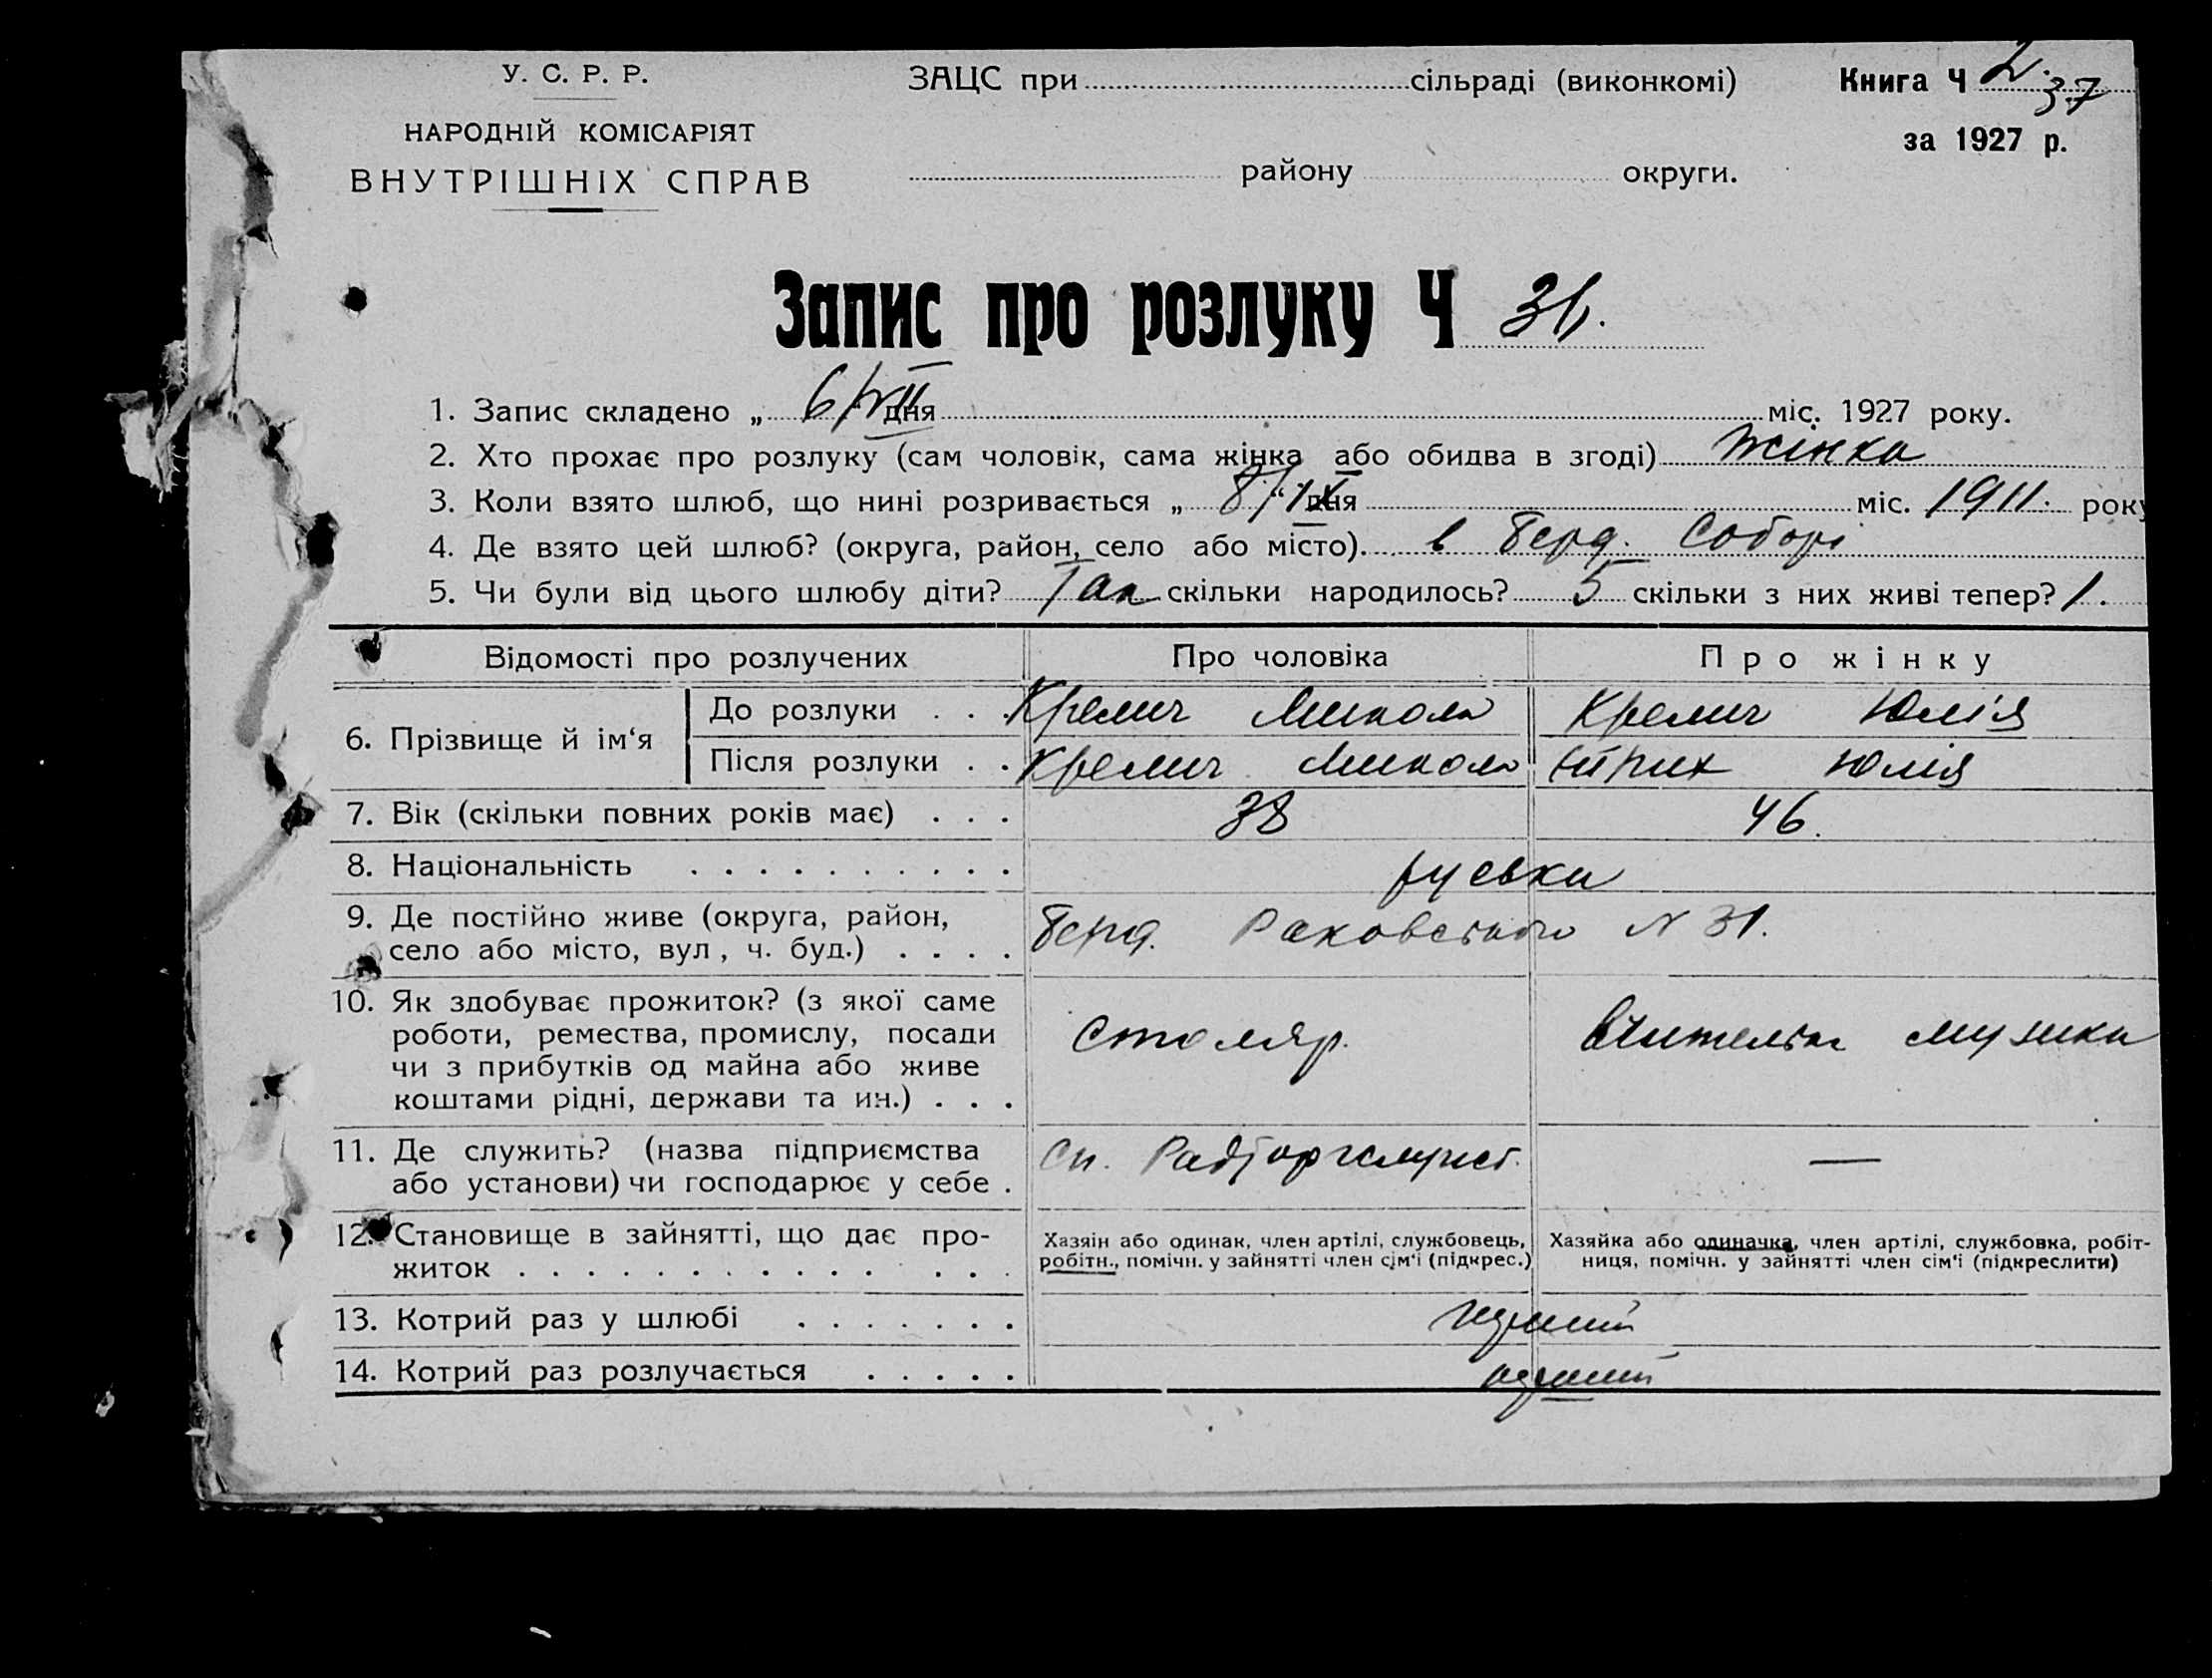 У. С. Р. Р.
НАРОДНІЙ КОМІСАРІЯТ
ВНУТРІШНІХ СПРАВ
ЗАЦС при сільраді (виконкомі)
району округи.
Книга Ч 2.
37
за 1927 р.
Запис про розлуку Ч 31.
1. Запис складено „ 6/VII дня міс. 1927 року.
2. Хто прохає про розлуку (сам чоловік, сама жінка або обидва в згоді) Жінка
3. Коли взято шлюб, що нині розривається „ 8/IX дня міс. 1911. року
4. Де взято цей шлюб? (округа, район, село або місто) в Берд. Соборі
5. Чи були від цього шлюбу діти? Так скільки народилось? 5 скільки з них живі тепер? 1.
Відомості про розлучених Про чоловіка Про жінку
6. Прізвище й ім‘я
До розлуки . . . Кремич Микола Кремич Юлія
Після розлуки . . Кремич Микола Юлія
7. Вік (скільки повних років має) . . . 38 46.
8. Національність . . . . . . . . . . руськи
9. Де постійно живе (округа, район,
село або місто, вул , ч. буд.) . . . . Берд. Раковського N 31.
10. Як здобуває прожиток? (з якої саме
роботи, ремества, промислу, посади
чи з прибутків од майна або живе
коштами рідні, держави та ин.) . . .
Столяр. вчителька музики
11. Де служить? (назва підприємства
або установи) чи господарює у себе .
Сп. —
12. Становище в зайнятті, що дає про-
житок . . . . . . . . . . . . . .
Хазяїн або одинак, член артілі, службовець,
робітн., помічн. у зайнятті член сім‘ї (підкрес.)
Хазяйка або одиначка, член артілі, службовка, робіт-
ниця, помічн. у зайнятті член сім‘ї (підкреслити)
13. Котрий раз у шлюбі . . . . . . .
14. Котрий раз розлучається . . . . .